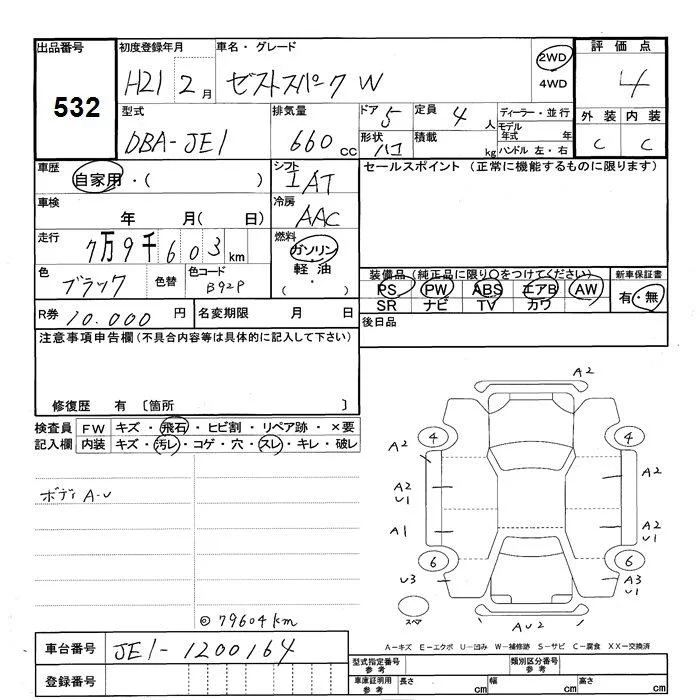 出品番号 初度登録年月 車名・グレード 評価点
532 H21 2月 ゼストスパーク W 2WD 4WD 4
型式 排気量 ドア 5 定員 4人 ディーラー・並行 外装 内装
DBA-JE1 660cc 形状 ハコ 積載 kg モデル年式 年 ハンドル 左・右 C C
車歴 自家用・( ) シフト IAT セールスポイント (正常に機能するものに限ります)
車検 年 月( 日) 冷房 AAC
走行 7万9千603km 燃料 ガソリン 軽油 ( ・ )
色 ブラック 色替 色コード B92P 装備品 (純正品に限り○をつけてください) 新車保証書
PS PW ABS エアB AW 有・無
SR ナビ TV カワ
R券 10.000円 名変期限 月 日 後日品
注意事項申告欄(不具合内容等は具体的に記入して下さい)
修復歴 有 〔箇所 〕
検査員 FW キズ・飛石・ヒビ割・リペア跡・×要
記入欄 内装 キズ・汚レ・コゲ・穴・スレ・キレ・破レ
ボディ A-U
A2
4 4
A2 A2
U1
A1 A2
U1
6 6
U3 A3
U1
スペア AU2
◎79604km
A-キズ E-エクボ U-凹み W-補修跡 S-サビ C-腐食 XX-交換済
車台番号 JE1-1200164 型式指定番号 参考 類別区分番号 参考
登録番号 車庫証明用 参考 長さ cm 幅 cm 高さ cm